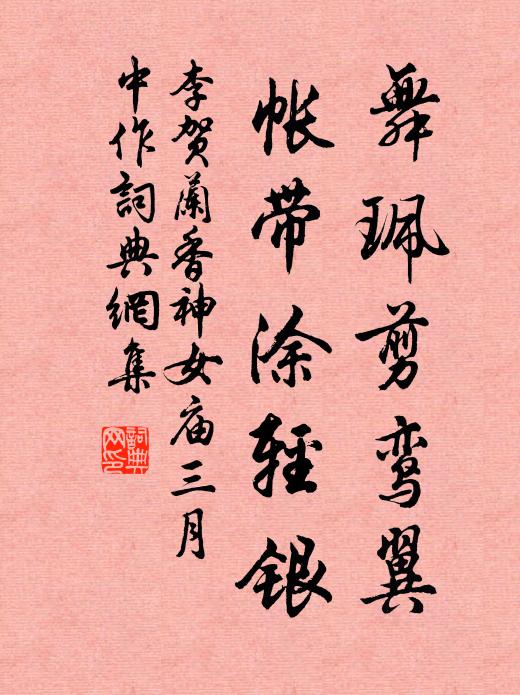 舞珮剪鸾翼
帐带涂轻银
李贺蘭香神女庙三月
中作詞典網集
詞典网印